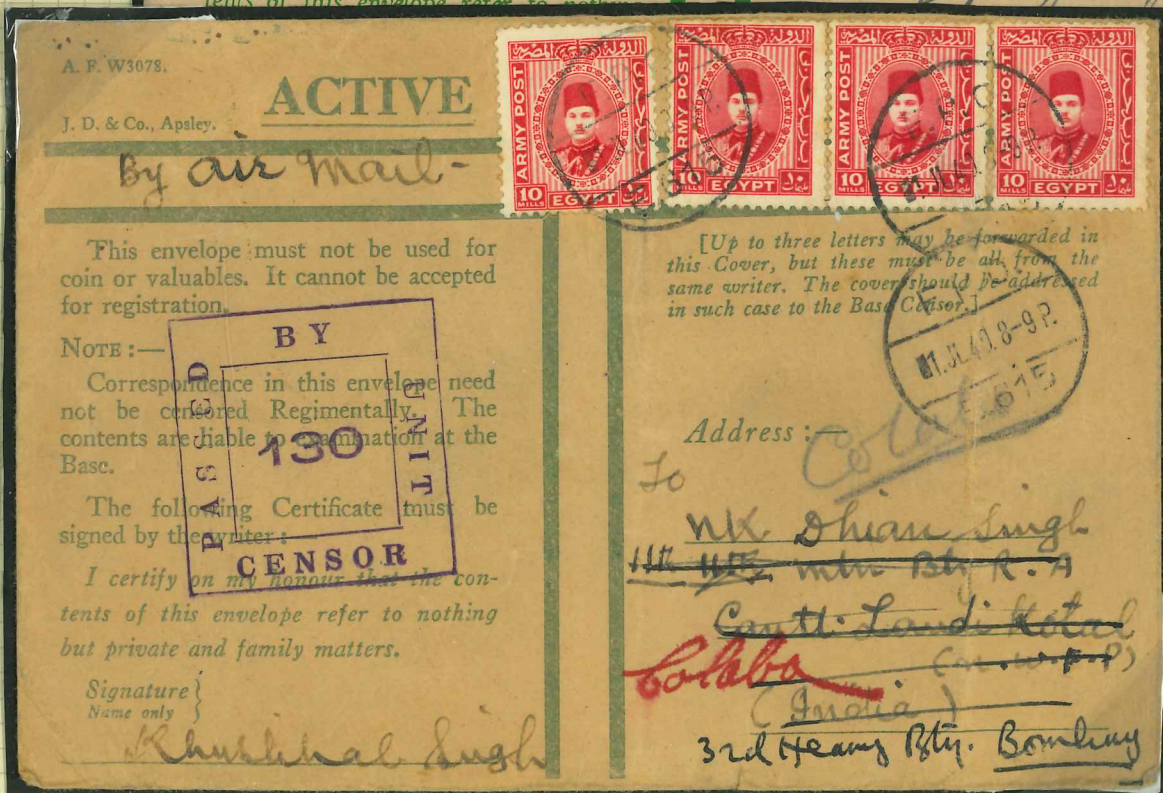 tents of this envelope refer to nothing
A. F. W3078.
ACTIVE
J. D. & Co., Apsley.
By air Mail -
الدولة المصرية
ARMY POST
10 MILLS EGYPT ١٠
الدولة المصرية
ARMY POST
10 MILLS EGYPT ١٠
الدولة المصرية
ARMY POST
10 MILLS EGYPT ١٠
الدولة المصرية
ARMY POST
10 MILLS EGYPT ١٠
This envelope must not be used for
coin or valuables. It cannot be accepted
for registration.
NOTE :—
Correspondence in this envelope need
not be censored Regimentally. The
contents are liable to examination at the
Base.
The following Certificate must be
signed by the writer :
I certify on my honour that the con-
tents of this envelope refer to nothing
but private and family matters.
Signature
Name only
Khushhal Singh
PASSED BY UNIT CENSOR
130
[Up to three letters may be forwarded in
this Cover, but these must be all from the
same writer. The cover should be addressed
in such case to the Base Censor.]
1 JL 40. 8-9 P.
E 615
Address :—
Colaba
To
NK Dhian Singh
11th mtn Bty R. A
Cantt. Landi Kotal
(N. W. F. P)
Colaba
(India)
3rd Heavy Bty. Bombay